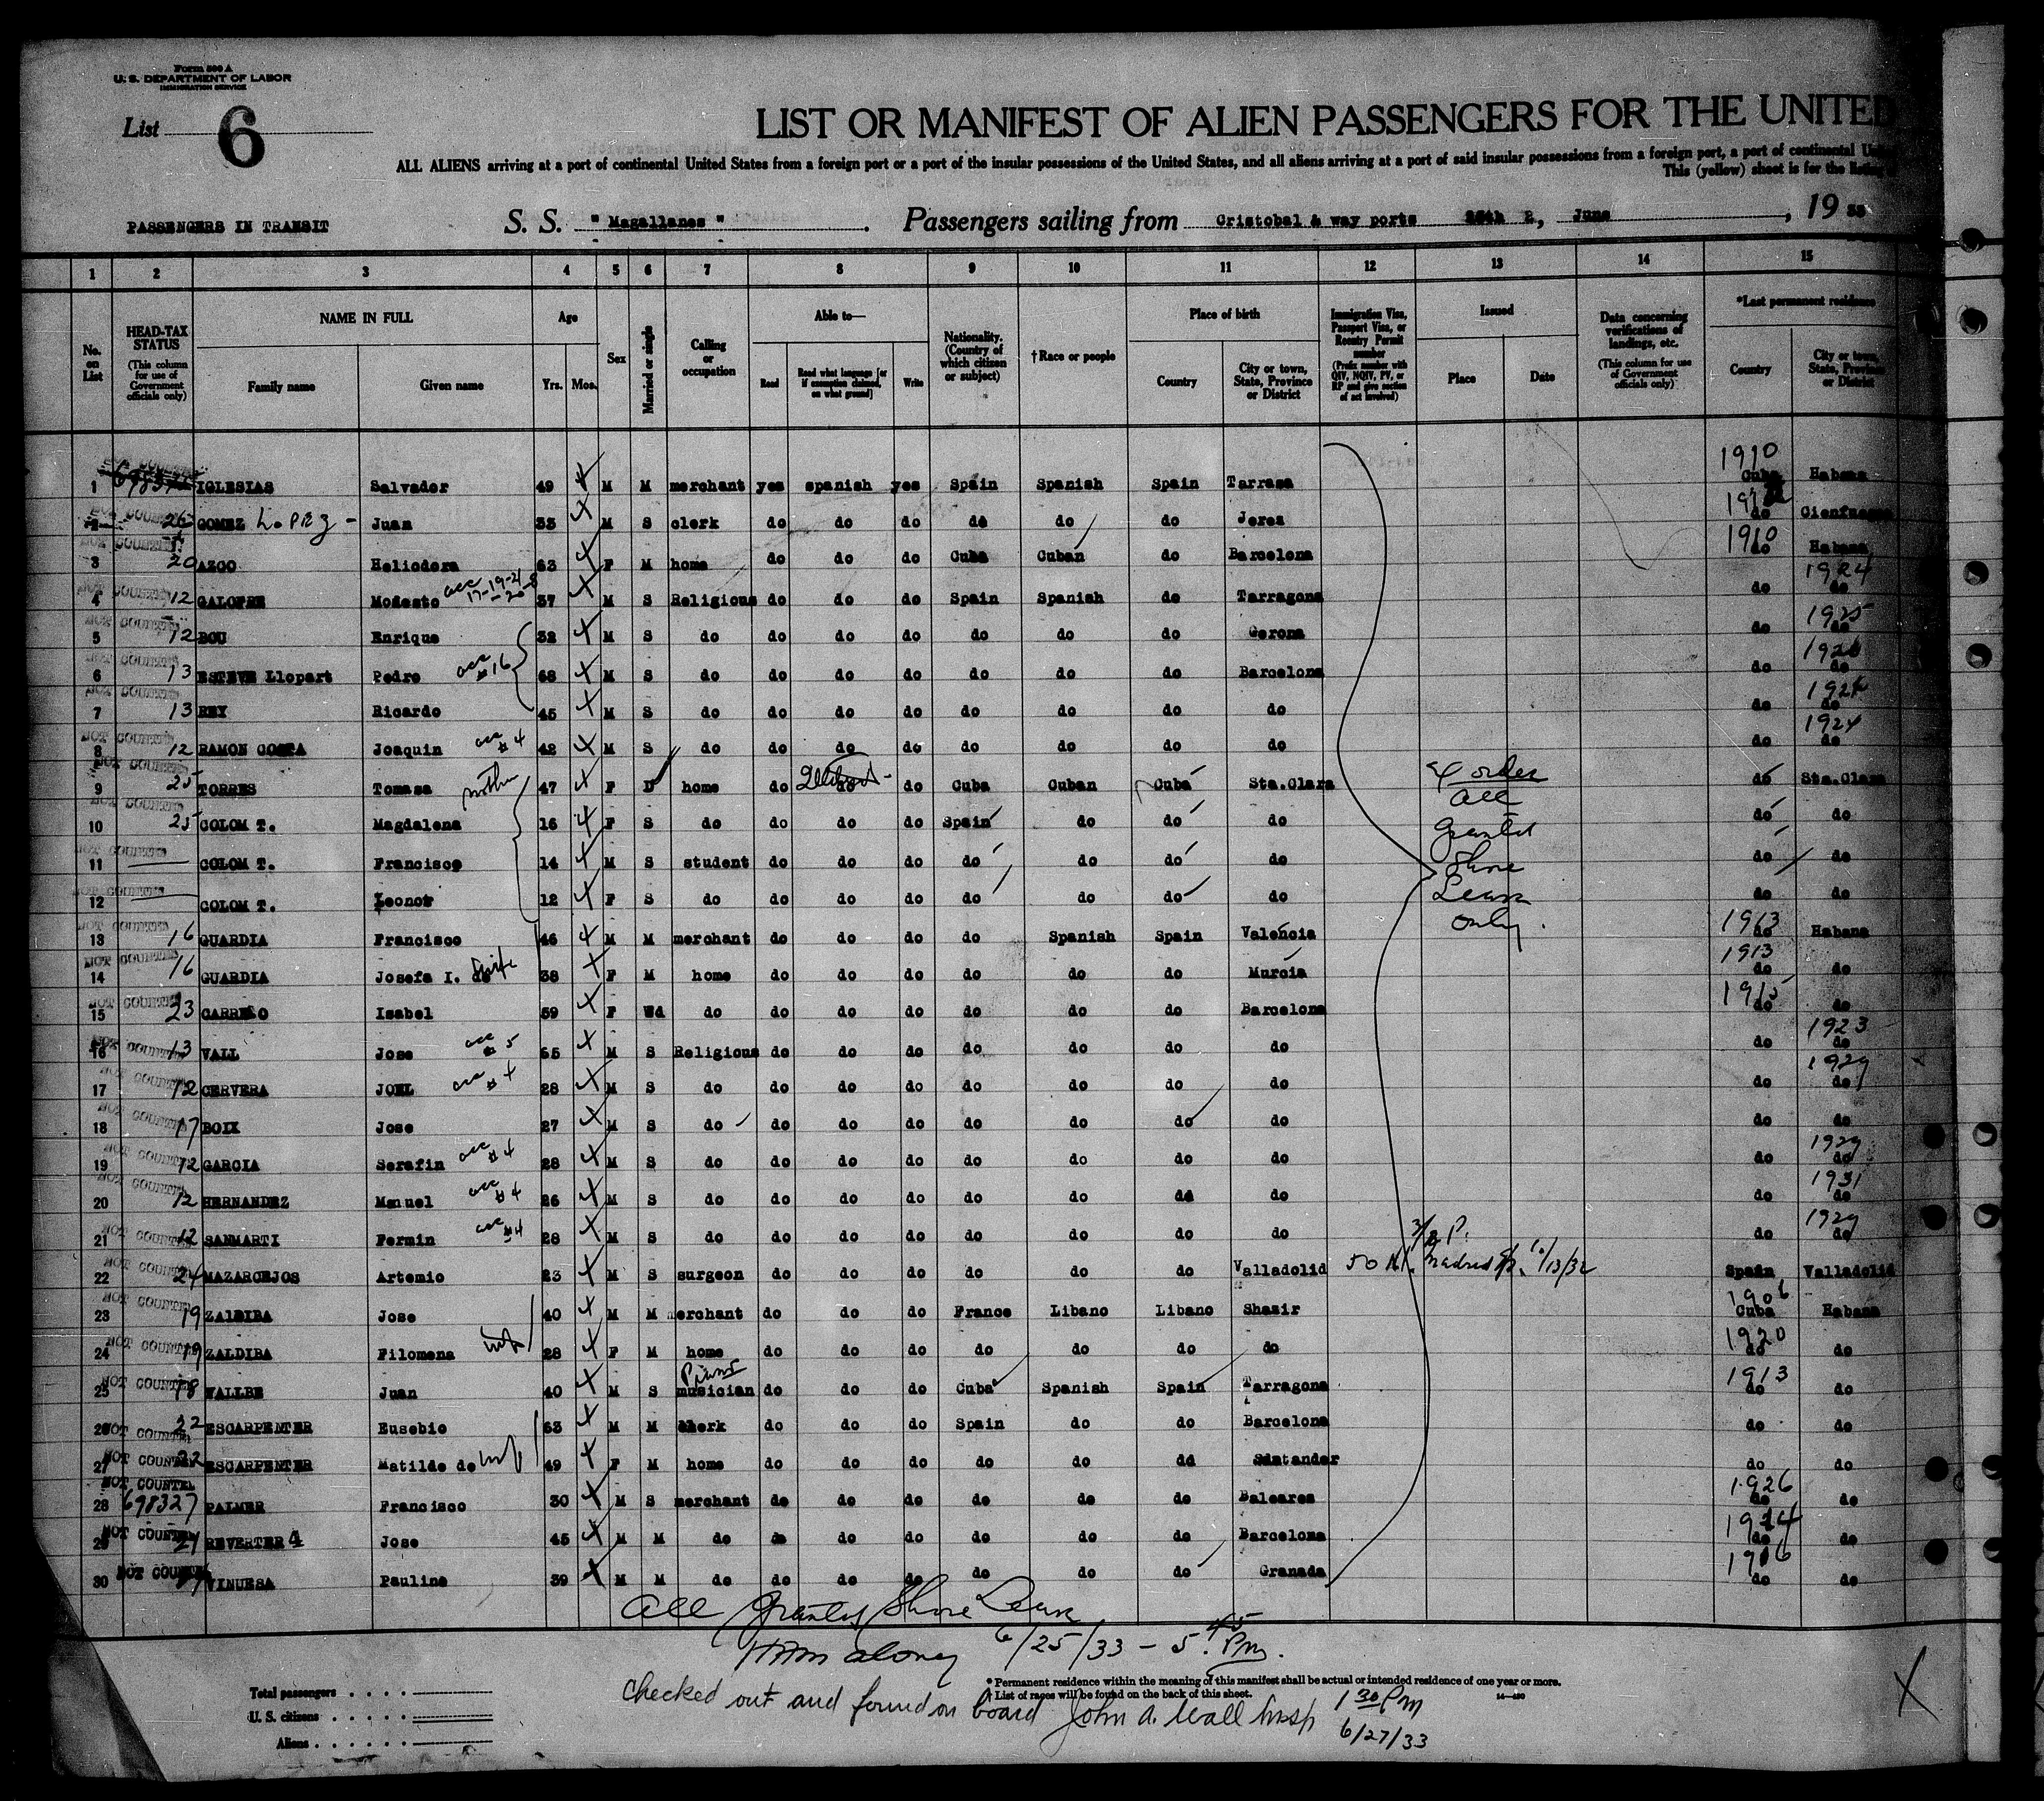 Form 500 A
U. S. DEPARTMENT OF LABOR
IMMIGRATION SERVICE
List 6
LIST OR MANIFEST OF ALIEN PASSENGERS FOR THE UNITED
ALL ALIENS arriving at a port of continental United States from a foreign port or a port of the insular possessions of the United States, and all aliens arriving at a port of said insular possessions from a foreign port, a port of continental
This (yellow) sheet is for the listing
PASSENGERS IN TRANSIT S. S. " Magallanes " Passengers sailing from Cristobal & way ports June, 19 33
1 2 3 4 5 6 7 8 9 10 11 12 13 14 15
No. on List
HEAD-TAX STATUS (This column for use of Government officials only)
NAME IN FULL
Family name Given name
Age
Yrs. Mos.
Sex
Married or single
Calling or occupation
Able to—
Read
Read what language [or if exemption claimed, on what ground]
Write
Nationality. (Country of which citizen or subject)
†Race or people
Place of birth
Country
City or town, State, Province or District
Immigration Visa, Passport Visa, or Reentry Permit number (Prefix number with QIV, NQIV, PV, or RP and give section of act involved)
Issued
Place Date
Data concerning verifications of landings, etc. (This column for use of Government officials only)
*Last permanent residence
Country
City or town, State, Province or District
1 IGLESIAS Salvador 49 M M merchant yes spanish yes Spain Spanish Spain Tarrasa 1910 Cuba Habana
2 26 GOMEZ Lopez - Juan 33 M S clerk do do do do do do Jerez do Cienfuegos
3 20 AZCO Heliodora 63 F M home do do do Cuba Cuban do Barcelona 1910 do Habana
4 12 GALOFRE Modesto acc 17-19-21-20-8 37 M S Religious do do do Spain Spanish do Tarragona do 1924 do
5 12 BOU Enrique 32 M S do do do do do do do Gerona do 1925 do
6 13 ESTEVE Llopart Pedro acc #16 68 M S do do do do do do do Barcelona do do
7 13 REY Ricardo 45 M S do do do do do do do do do do
8 12 RAMON COSTA Joaquin acc #4 42 M S do do do do do do do do do 1924 do
9 25 TORRES Tomasa mother 47 F D home do do do Cuba Cuban Cuba Sta.Clara do Sta.Clara
10 25 COLOM T. Magdalena 16 F S do do do do Spain do do do do do
11 COLOM T. Francisco 14 M S student do do do do do do do do do
12 COLOM T. Leonor 12 F S do do do do do do do do do do
13 16 GUARDIA Francisco 46 M M merchant do do do do Spanish Spain Valencia 1913 do Habana
14 16 GUARDIA Josefa I. de wife 38 F M home do do do do do do Murcia 1913 do do
15 23 CARREÑO Isabel 59 F Wd do do do do do do do Barcelona 1915 do do
16 13 VALL Jose acc #5 65 M S Religious do do do do do do do do 1923 do
17 12 CERVERA JOEL acc #4 28 M S do do do do do do do do do 1929 do
18 17 BOIX Jose 27 M S do do do do do do do do do do
19 12 GARCIA Serafin acc #4 28 M S do do do do do do do do do 1929 do
20 12 HERNANDEZ Manuel acc #4 26 M S do do do do do do do do do 1931 do
21 12 SANMARTI Fermin acc #4 28 M S do do do do do do do do do 1929 do
22 24 MAZARCEJOS Artemio 23 M S surgeon do do do do do do Valladolid Spain Valladolid
23 19 ZALDIBA Jose 40 M M merchant do do do France Libano Libano Shasir 1906 Cuba Habana
24 19 ZALDIBA Filomena wife 28 F M home do do do do do do do 1920 do do
25 18 VALLBE Juan 40 M S musician do do do Cuba Spanish Spain Tarragona 1913 do do
26 22 ESCARPENTER Eusebio 63 M M Clerk do do do Spain do do Barcelona do do
27 22 ESCARPENTER Matilde de wife 49 F M home do do do do do do Santander do do
28 698327 PALMER Francisco 30 M S merchant do do do do do do Baleares 1926 do do
29 REVERTER 4 Jose 45 M M do do do do do do do Barcelona do do
30 VINUESA Paulino 39 M M do do do do do do do Granada do do
NOT COUNTED
order
All
granted
Shore
Leave
only.
All granted Shore Leave
6/25/33 - 5.45 Pm.
* Permanent residence within the meaning of this manifest shall be actual or intended residence of one year or more.
† List of races will be found on the back of this sheet.
14—480
Total passengers
U. S. citizens
Aliens
checked out and found on board John A. Wall Insp 1 30 Pm
6/27/33